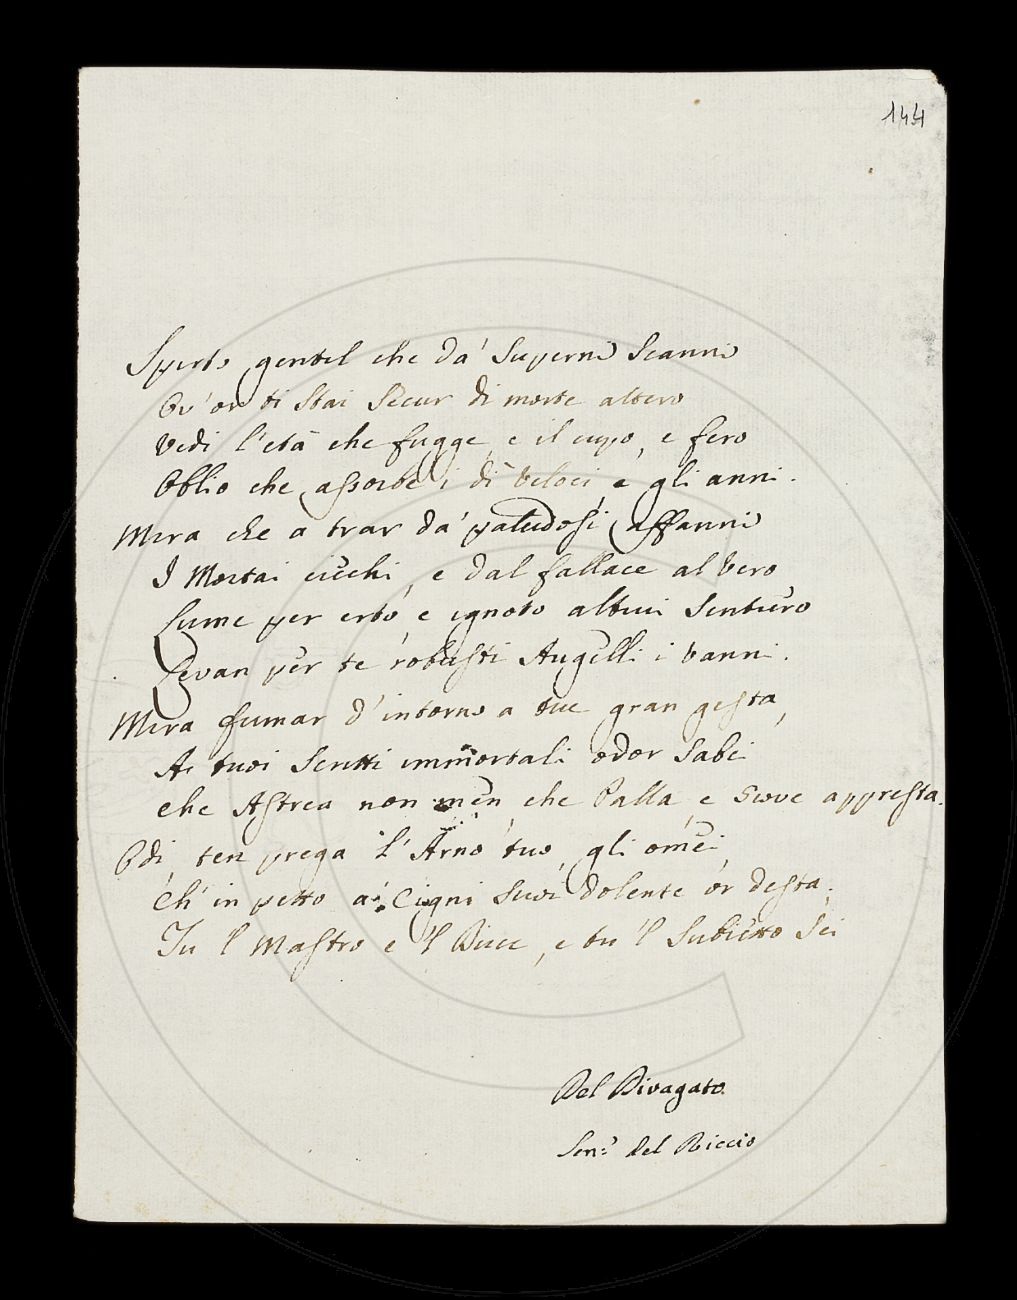 144
Spirto gentil che da' Superni Scanni
Ov' or ti Stai Secur di morte altero
Vedi l'età che fugge, e il cupo, e fero
Oblio che assorbe i dì Veloci e gli anni.
Mira che a trar da' paludosi affanni
I Mortai ciechi, e dal fallace al Vero
Lume per erto, e ignoto altrui Sentiero
Levan per te robusti Augelli i Vanni.
Mira fumar d'intorno a tue gran gesta,
A' tuoi Scritti immortali odor Sabei
che Astrea non men che Palla, e Giove appresta.
Odi, ten prega l' Arno tuo, gli omei,
Ch' in petto a' Cigni Suoi dolente or desta;
Tu 'l Mastro e 'l Duce, e tu 'l Subietto Sei
Del Divagato
Sen.r del Riccio